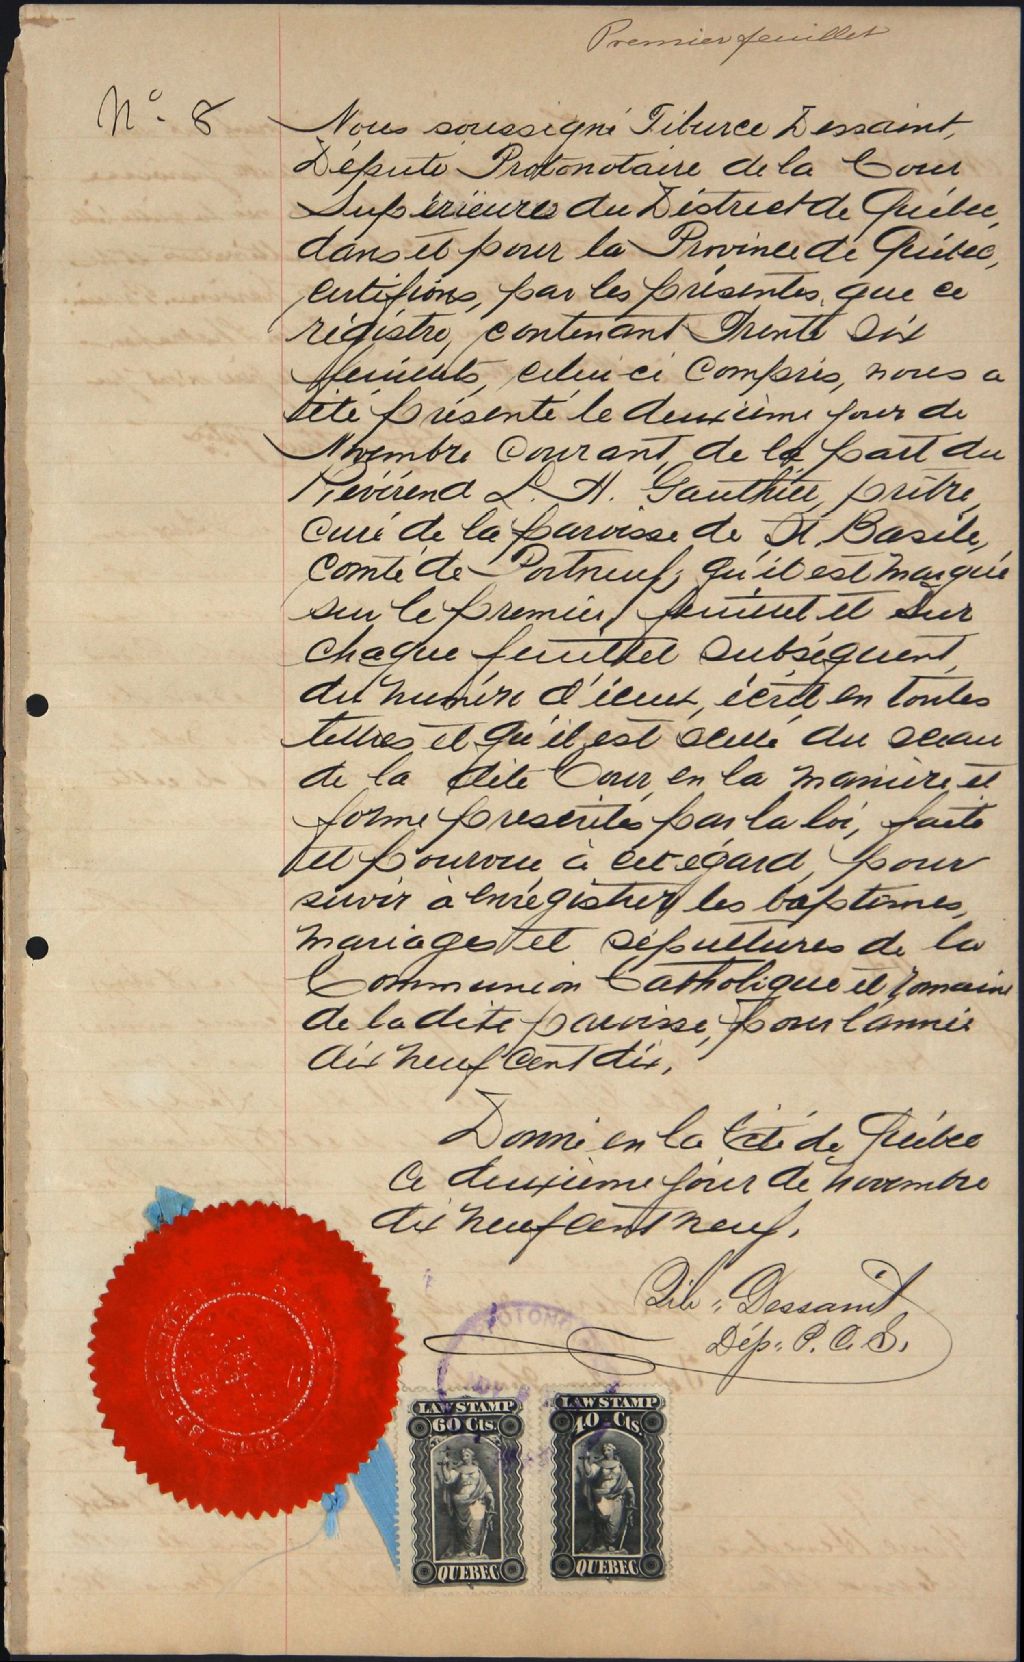 Premier feuillet
No. 8
Nous soussigné Tiburce Dessaint,
Député Protonotaire de la Cour
Supérieure du District de Québec,
dans et pour la Province de Québec,
certifions, par les présentes, que ce
régistre, contenant Trente six
feuillets, celui-ci compris, nous a
été présenté le deuxième jour de
Novembre courant, de la part du
Révérend L. H. Gauthier, prêtre,
curé de la paroisse de St. Basile,
comté de Portneuf; qu'il est marqué
sur le premier feuillet et sur
chaque feuillet subséquent,
du numéro d'iceux, écrit en toutes
lettres et qu'il est scellé du sceau
de la dite Cour, en la manière et
forme prescrites par la loi, faite
et pourvue à cet égard, pour
servir à enrégistrer les baptêmes,
mariages et sépultures de la
Communion Catholique et romaine
de la dite paroisse, pour l'année
dix neuf cent dix.
Donné en la Cité de Québec
ce deuxième jour de novembre
dix neuf cent neuf.
Tib. Dessaint
Dép. P. C. S.
LAW STAMP
60 Cts.
QUEBEC
LAW STAMP
40 Cts
QUEBEC